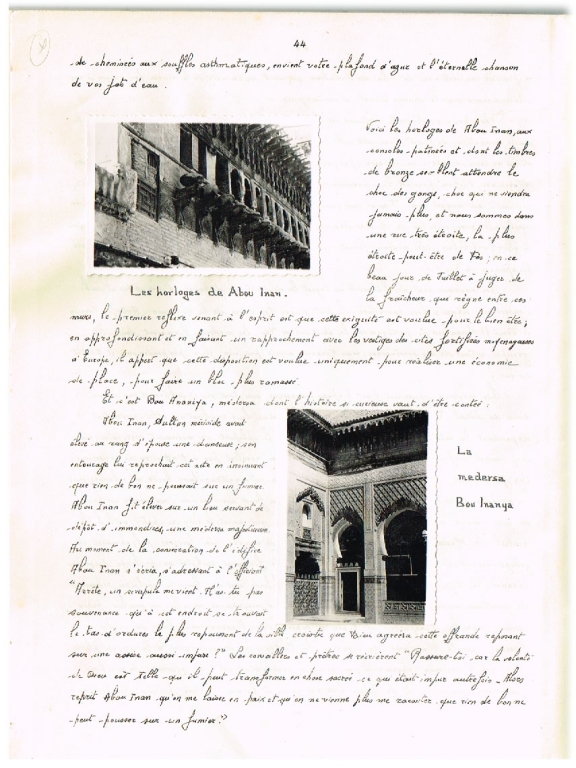 44
de cheminées aux souffles asthmatiques, envient votre plafond d'azur et l'éternelle chanson
de vos jets d'eau.
Voici les horloges de Abou Inan, aux
consoles patinées et dont les timbres
de bronze semblent attendre le
choc des gongs, choc qui ne viendra
jamais plus, et nous sommes dans
une rue très étroite, la plus
étroite peut-être de Fès; en ce
beau jour de Juillet à juger de
la fraîcheur que règne entre ces
Les horloges de Abou Inan.
murs, le premier réflexe venant à l'esprit est que cette exiguïté est voulue pour le bien être;
en approfondissant et en faisant un rapprochement avec les vestiges des cités fortifiées moyenageuses
d'Europe, il appert que cette disposition est voulue uniquement pour réaliser une économie
de place, pour faire un bloc plus ramassé.
Et c'est Bou Ananiya, médersa dont l'histoire si curieuse vaut d'être contée:
Abou Inan, Sultan mérinide avait
élevé au rang d'épouse une danseuse; son
entourage lui reprochait cet acte en insinuant
que rien de bon ne poussait sur un fumier.
Abou Inan fit élever sur un lieu servant de
dépôt d'immondices, une médersa magnifique.
Au moment de la consécration de l'édifice
Abou Inan s'écria, s'adressant à l'officiant
"Arrête, un scrupule me vient. N'as-tu pas
souvenance qu'à cet endroit se trouvait
La
medersa
Bou Inanya
le tas d'ordures le plus repoussant de la ville crois-tu que Dieu agréera cette offrande reposant
sur une assise aussi impure?" Les conseillers et prêtres se récrièrent "Rassure-toi car la volonté
de Dieu est telle qu'il peut transformer en chose sacrée ce qui était impur autrefois - Alors
reprit Abou Inan qu'on me laisse en paix et qu'on ne vienne plus me raconter que rien de bon ne
peut pousser sur un fumier."